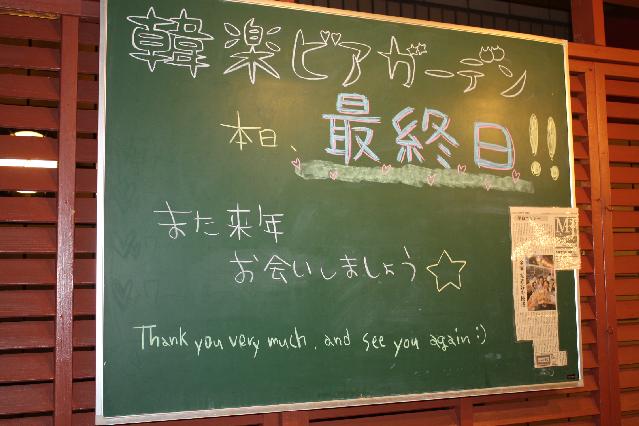 韓楽ビアガーデン
本日、最終日!!
また来年
お会いしましょう☆
Thank you very much, and see you again :)